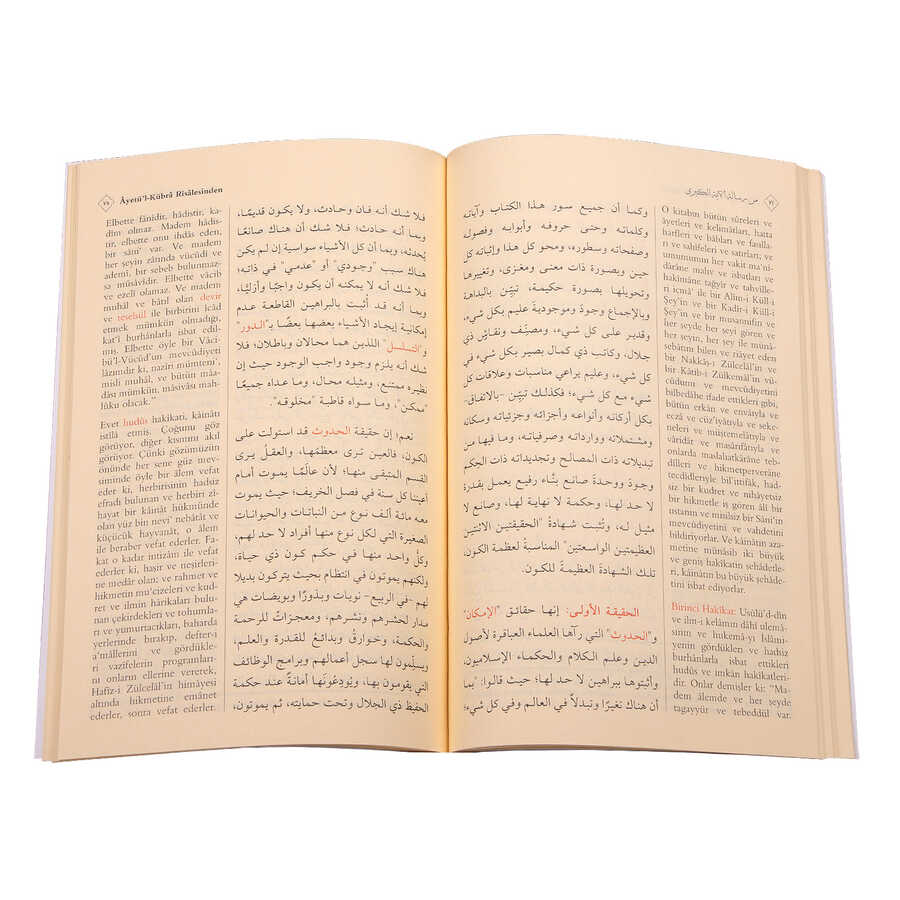 من رسالة الآية الكبرى
وكما أن جميع سور هذا الكتاب وآياته
وكلماته وحتى حروفه وأبوابه وفصوله
وصفحاته وسطوره، ومحو كل هذا وإثباته كل
حين وبصورة ذات معنى ومغزى، وتغييرها
وتحويلها بصورة حكيمة، تبيّن بالبداهة
وبالإجماع وجودَ وموجوديةَ عليم بكل شيء،
وقدير على كل شيء، ومصنِّف ونقاش ذي
جلال، وكاتب ذي كمال بصير بكل شيء في
كل شيء، وعليم يراعي مناسبات وعلاقات كل
شيء مع كل شيء؛ فكذلك تبيّن -بالاتفاق-
بكل أركانه وأنواعه وأجزائه وجزئياته وسكانه
ومشتملاته ووارداته وصرفياته، وما فيها من
تبديلاته ذات المصالح وتجديداته ذات الحِكم
وجودَ ووحدةَ صانع بنّاء رفيع يعمل بقدرة
لا حد لها، وحكمة لا نهاية لها، وصانع لا
مثيل له، وتُثبت شهادةُ "الحقيقتين الاثنتين
العظيمتين الواسعتين" المناسبةُ لعظمة الكون،
تلك الشهادةَ العظيمةَ للكون.
الحقيقة الأولى: إنها حقائق "الإمكان"
و"الحدوث" التي رآها العلماء العباقرة لأصول
الدين وعلم الكلام والحكماء الإسلاميون،
وأثبتوها ببراهين لا حد لها؛ حيث قالوا: "بما
أن هناك تغيّرًا وتبدلًا في العالم وفي كل شيء؛
O kitabın bütün sûreleri ve
âyetleri ve kelimâtları, hatta
harfleri ve bâbları ve fasılla-
rı ve sahifeleri ve satırları; ve
umumunun her vakit ma'ni-
dârâne mahv ve isbatları ve
hakîmâne tağyir ve tahville-
ri icmâ' ile bir Alîm-i Külli
Şey'in ve bir Kadîr-i Külli
Şey'in ve bir musannifin ve
her şeyde her şeyi gören ve
her şeyin, her şey ile münâ-
sebâtını bilen ve riâyet eden
bir Nakkâş-ı Zülcelâl'in ve
bir Kâtib-i Zülkemâl'in vü-
cûdunu ve mevcûdiyetini
bilbedâhe ifade ettikleri gibi,
bütün erkân ve envâıyla ve
eczâ ve cüz'iyâtıyla ve seke-
neleri ve müştemelâtıyla ve
vâridât ve masârifâtıyla ve
onlarda maslahatkârâne teb-
dilleri ve hikmetperverâne
tecdidleriyle bil'ittifâk, had-
siz bir kudret ve nihâyetsiz
bir hikmetle iş gören âlî bir
ustanın ve misilsiz bir Sâni'in
mevcûdiyetini ve vahdetini
bildiriyorlar. Ve kâinatın aza-
metine münâsib iki büyük
ve geniş hakikatin şehâdetle-
ri, kâinatın bu büyük şehâde-
tini isbat ediyorlar.
Birinci Hakîkat: Usûlü'd-dîn
ve ilm-i kelâmın dâhî ulemâ-
sının ve hukemâ-yı İslâmi-
yenin gördükleri ve hadsiz
burhânlarla isbat ettikleri
hudûs ve imkân hakîkatleri-
dir. Onlar demişler ki: "Ma-
dem âlemde ve her şeyde
tagayyür ve tebeddül var.
Âyetü'l-Kübrâ Risâlesinden
فلا شك أنه فـان وحـادث، ولا يكون قديمًا،
وبما أنه حادث؛ فلا شك أن هناك صانعًا
يُحدثه، وبما أن كل الأشياء سواسية إن لم يكن
هناك سبب "وجودي" أو "عدمي" في ذاته؛
فلا شك أنه لا يمكنه أن يكون واجبًا وأزليًّا،
وبما أنه قد أُثبت بالبراهين القاطعة عدم
إمكانية إيجاد الأشياء بعضِها بعضًا بـ"الدور"
و"التسلسل" اللذين هما محالان وباطلان؛ فلا
شك أنه يلزم وجود واجب الوجود حيث إن
نظيره ممتنع، ومثيله محال، وما عداه جميعًا
"ممكن"، وما سواه قاطبة "مخلوقه".
نعم؛ إن حقيقة الحدوث قد استولت على
الكون، فالعين ترى معظمَها، والعقلُ يرى
القسمَ المتبقى منها؛ لأن عالَمًا يموت أمام
أعيننا كل سنة في فصل الخريف؛ حيث يموت
معه مائة ألف نوع من النباتات والحيوانات
الصغيرة التي لكل نوع منها أفراد لا حد لهم،
وكلُّ واحد منها في حكم كون ذي حياة،
ولكنهم يموتون في انتظام بحيث يتركون بديلا
لهم -في الربيع- نويات وبذورًا وبويضات هي
مدار لحشرهم ونشرهم، ومعجزاتٌ للرحمة
والحكمة، وخوارقُ وبدائع للقدرة والعلم،
ويسلِّمون لها سجل أعمالهم وبرامج الوظائف
التي يقومون بها، ويُودِعُونَها أمانةً عند حكمة
الحفيظ ذي الجلال وتحت حمايته، ثم يموتون،
Elbette fânidir, hâdistir, ka-
dîm olmaz. Madem hâdis-
tir, elbette onu ihdâs eden,
bir sâni' var. Ve madem
her şeyin zâtında vücûdî ve
ademî, bir sebeb bulunmaz-
sa müsâvidir. Elbette vâcib
ve ezelî olamaz. Ve madem
muhâl ve bâtıl olan devir
ve teselsül ile birbirini îcâd
etmek mümkün olmadığı,
kat'î burhânlarla isbat edil-
miş. Elbette öyle bir Vâci-
bü'l-Vücûd'un mevcûdiyeti
lâzımdır ki, nazîri mümteni',
misli muhâl, ve bütün mâa-
dâsı mümkün, mâsivâsı mah-
lûku olacak."
Evet hudûs hakîkati, kâinâtı
istilâ etmiş. Çoğunu göz
görüyor, diğer kısmını akıl
görüyor. Çünki gözümüzün
önünde her sene güz mevsi-
minde öyle bir âlem vefat
eder ki, herbirisinin hadsiz
efradı bulunan ve herbiri zî-
hayat bir kâinât hükmünde
olan yüz bin nevi' nebâtât ve
küçücük hayvanât, o âlem
ile beraber vefat ederler. Fa-
kat o kadar intizâm ile vefat
ederler ki, haşir ve neşirleri-
ne medâr olan; ve rahmet ve
hikmetin mu'cizeleri ve kud-
ret ve ilmin hârikaları bulu-
nan çekirdekleri ve tohumla-
rı ve yumurtacıkları, baharda
yerlerinde bırakıp, defter-i
a'mâllerini ve gördükle-
ri vazifelerin programları-
nı onların ellerine vererek,
Hafîz-i Zülcelâl'in himâyesi
altında hikmetine emânet
ederler, sonra vefat ederler.